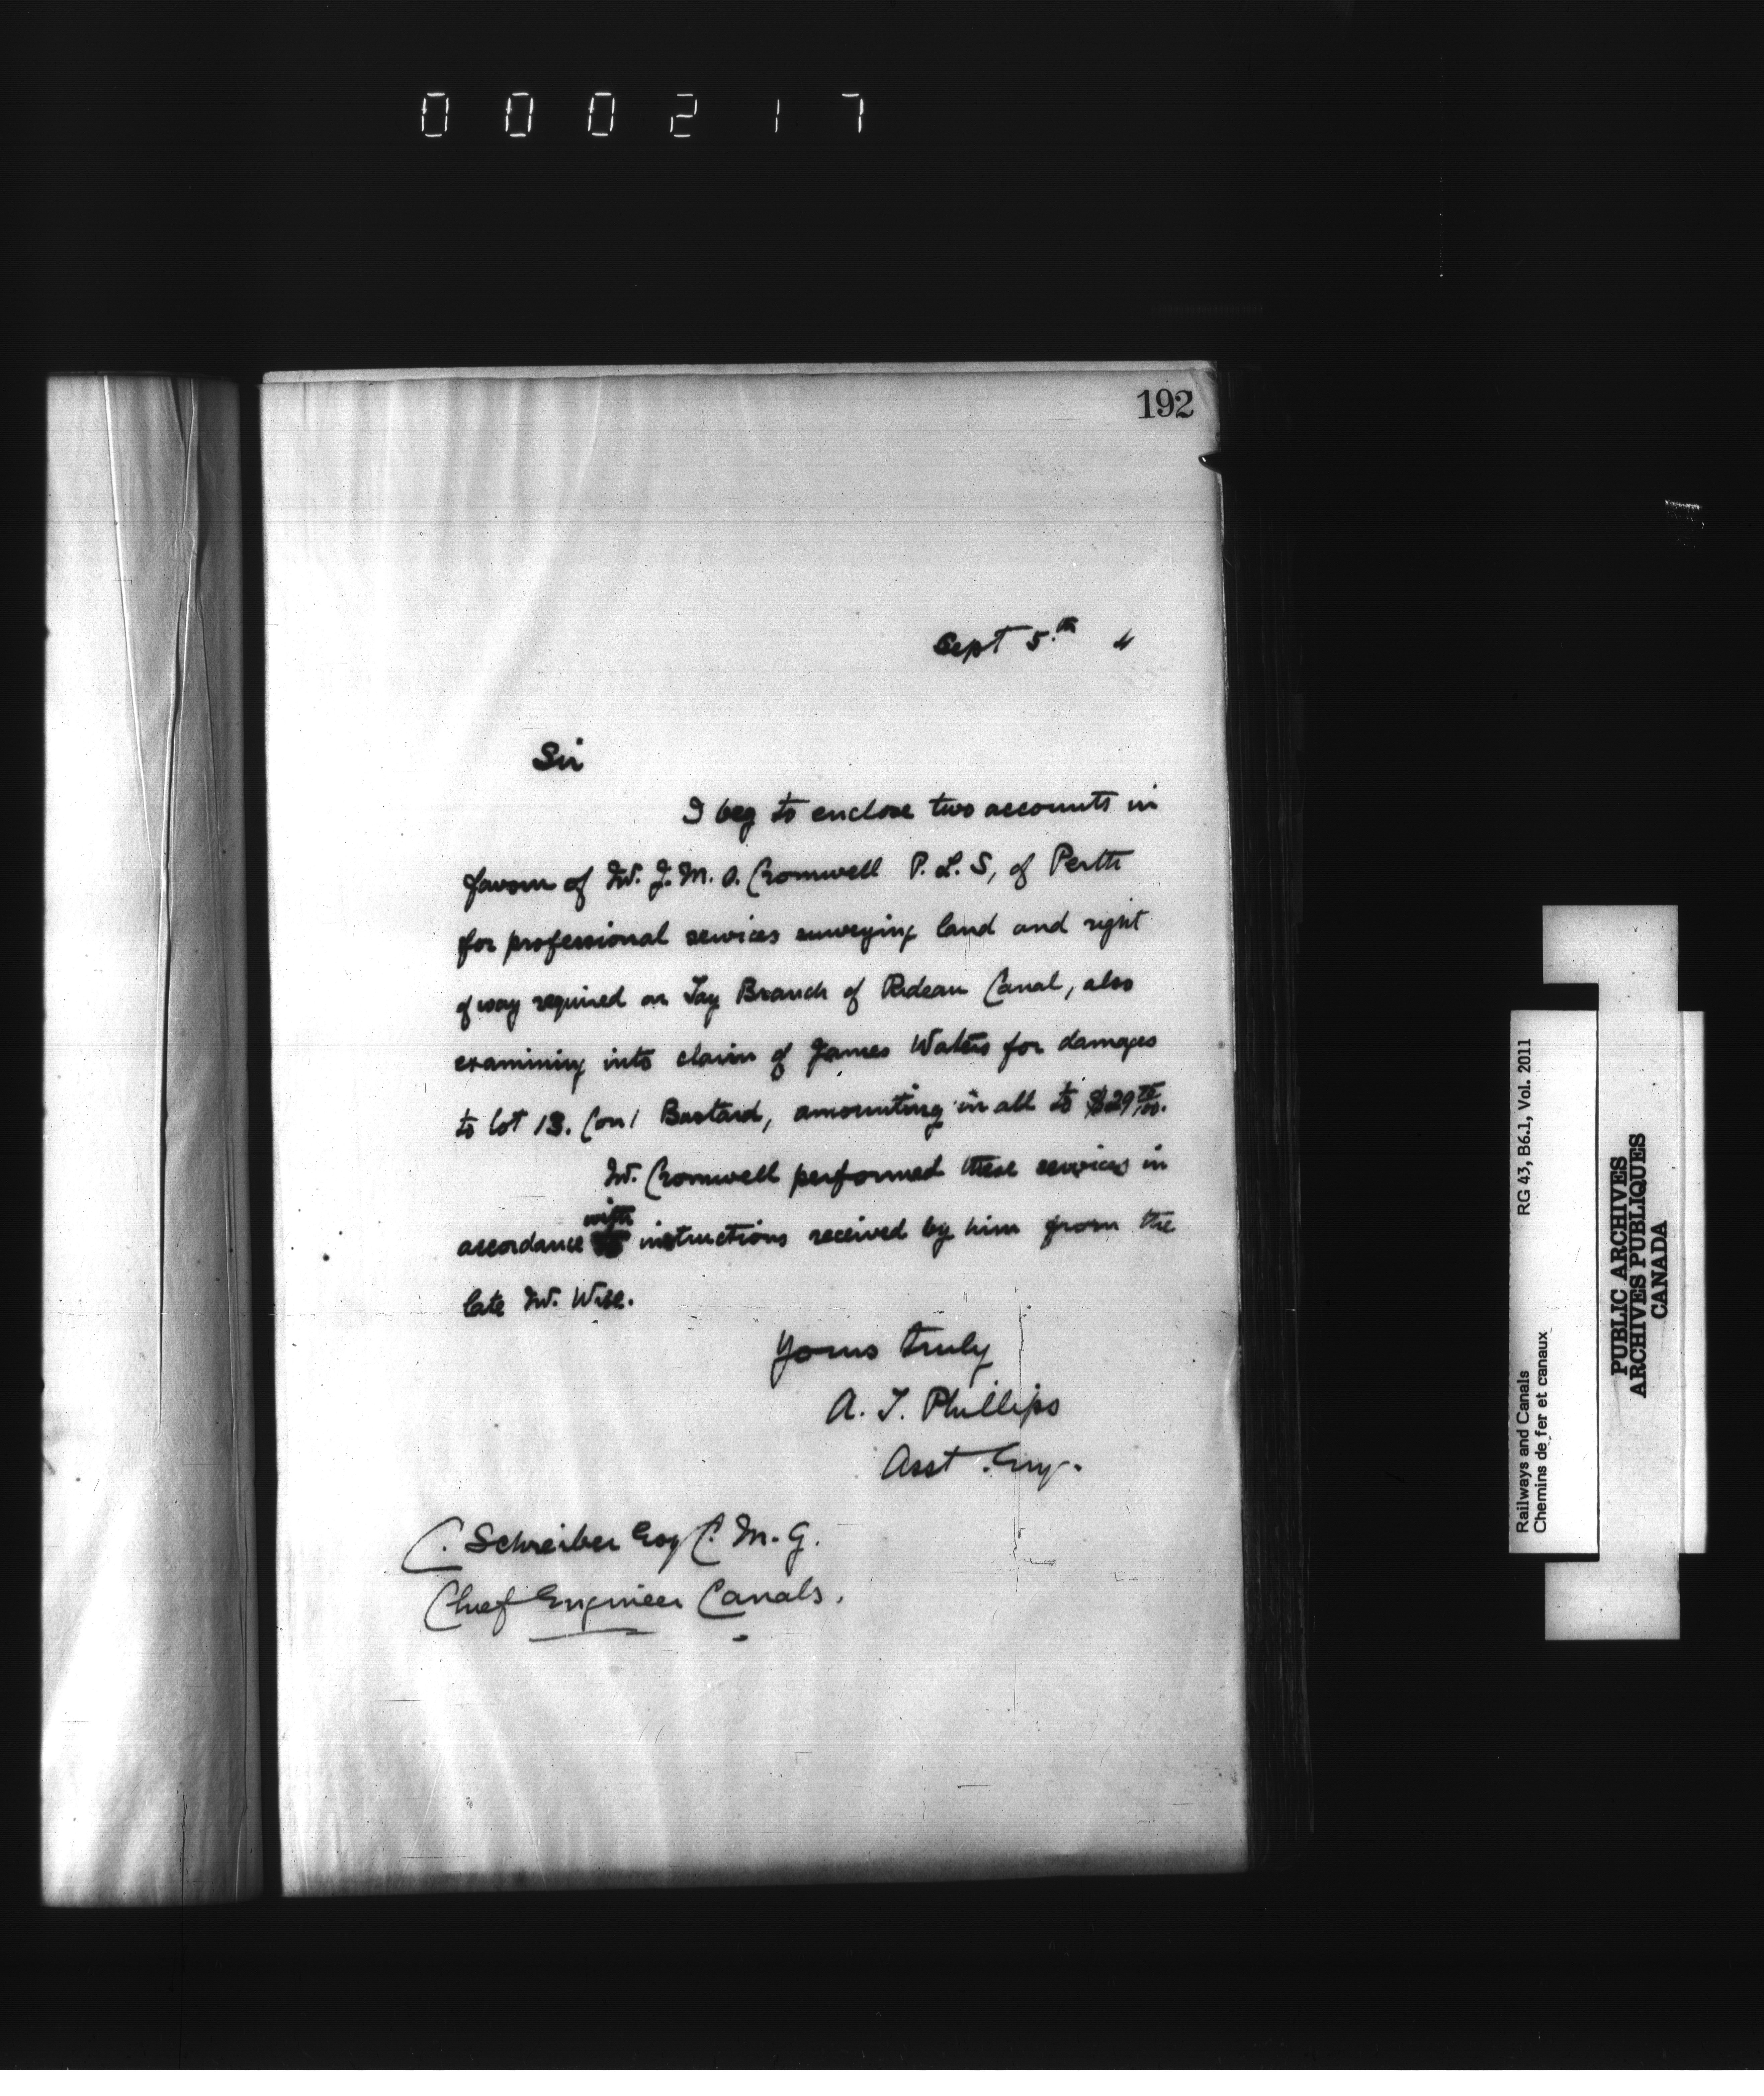 000217
192
Sept 5.th 4
Sir
I beg to enclose two accounts in
favour of Mr. J. M. O. Cromwell P. L. S, of Perth
for professional services surveying land and right
of way required on Tay Branch of Rideau Canal, also
examining into claim of James Waters for damages
to lot 13. Con 1 Bastard, amounting in all to $29
Mr. Cromwell performed these services in
with
accordance instructions received by him from the
late Mr. Wise.
Yours truly
A. T. Phillips
Asst. Eng.
C. Schreiber Esq C. M. G.
Chief Engineer Canals.
Railways and Canals RG 43, B6.1, Vol. 2011
Chemins de fer et canaux
PUBLIC ARCHIVES
ARCHIVES PUBLIQUES
CANADA